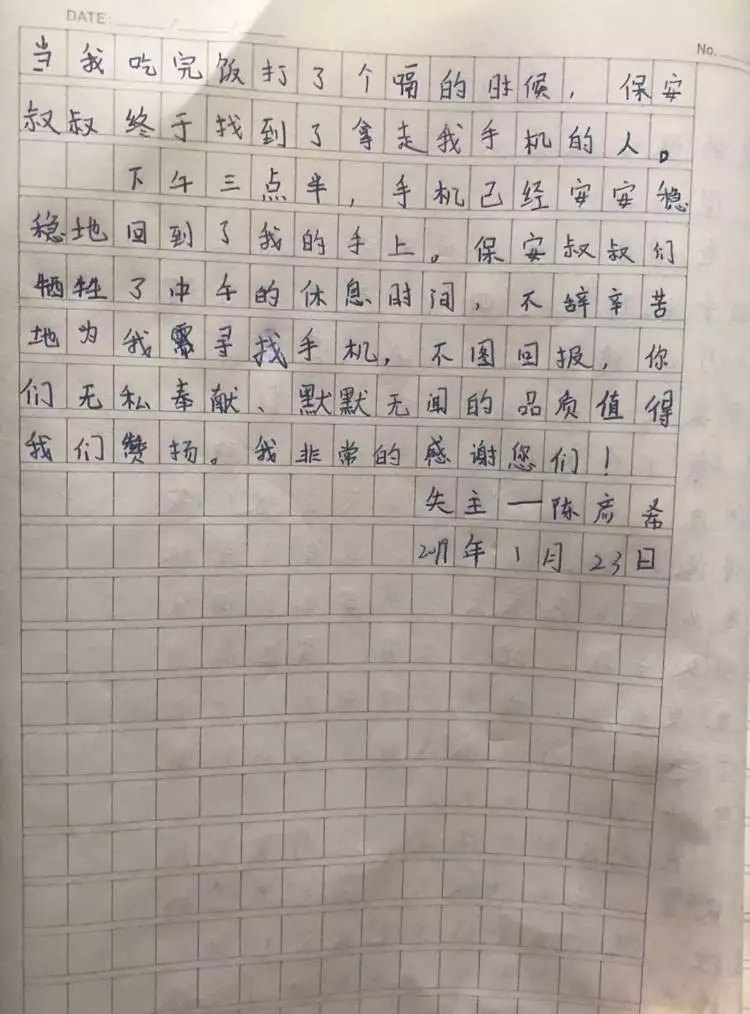 DATE: / /
No.
当我吃完饭打了个嗝的时候，保安
叔叔终于找到了拿走我手机的人。
下午三点半，手机已经安安稳
稳地回到了我的手上。保安叔叔们
牺牲了中午的休息时间，不辞辛苦
地为我寻找手机，不图回报，你
们无私奉献、默默无闻的品质值得
我们赞扬。我非常的感谢您们！
失主一陈彦希
2019年1月23日